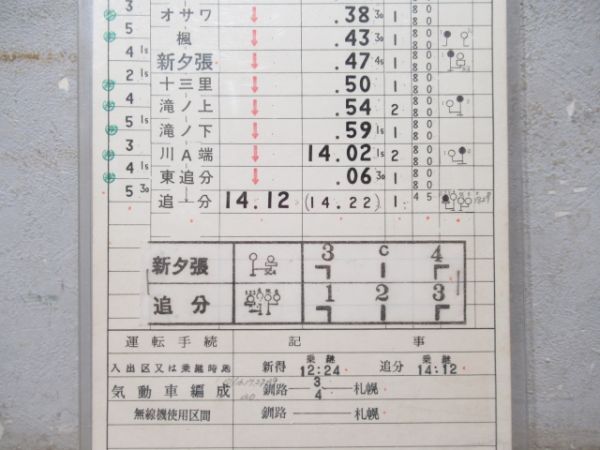 3 オサワ ↓ .38 30 1 80 80
3 楓 ↓ .43 30 1 80 80
4 1s 新夕張 ↓ .47 4s 1 80 80
2 1s 十三里 ↓ .50 1 80 80
4 滝ノ上 ↓ .54 2 80 80
5 1s 滝ノ下 ↓ .59 1s 1 80 80
3 川A端 ↓ 14.02 1s 2 80 80
4 東追分 ↓ .06 30 1 80 80
5 30 追分 14.12 (14.22) 1 45
新夕張 3 C 4
追分 1 2 3
運転手続 記事
入出区又は乗継時地 新得 乗継 12:24 追分 乗継 14:12
気動車編成 釧路 3 4 札幌
無線機使用区間 釧路 札幌